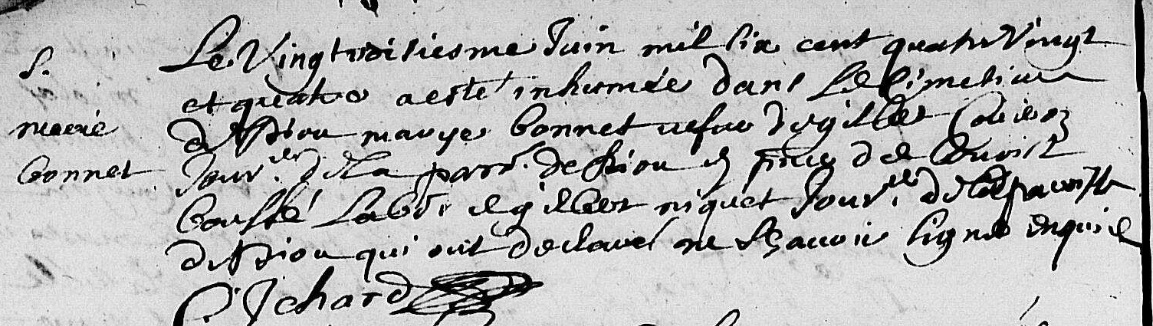 S.
marie
bonnet
Le Vingt troisiesme Juin mil six cent quatre Vingt
et quatre a esté inhumée dans Le cimetiere
de marye bonnet vefve de gilbert
Jour.er de La parr. de en pnce de
Lab.r et gilbert niquet Jour.er de la paroisse
de qui ont declaré ne sçavoir signer enquis
Richard